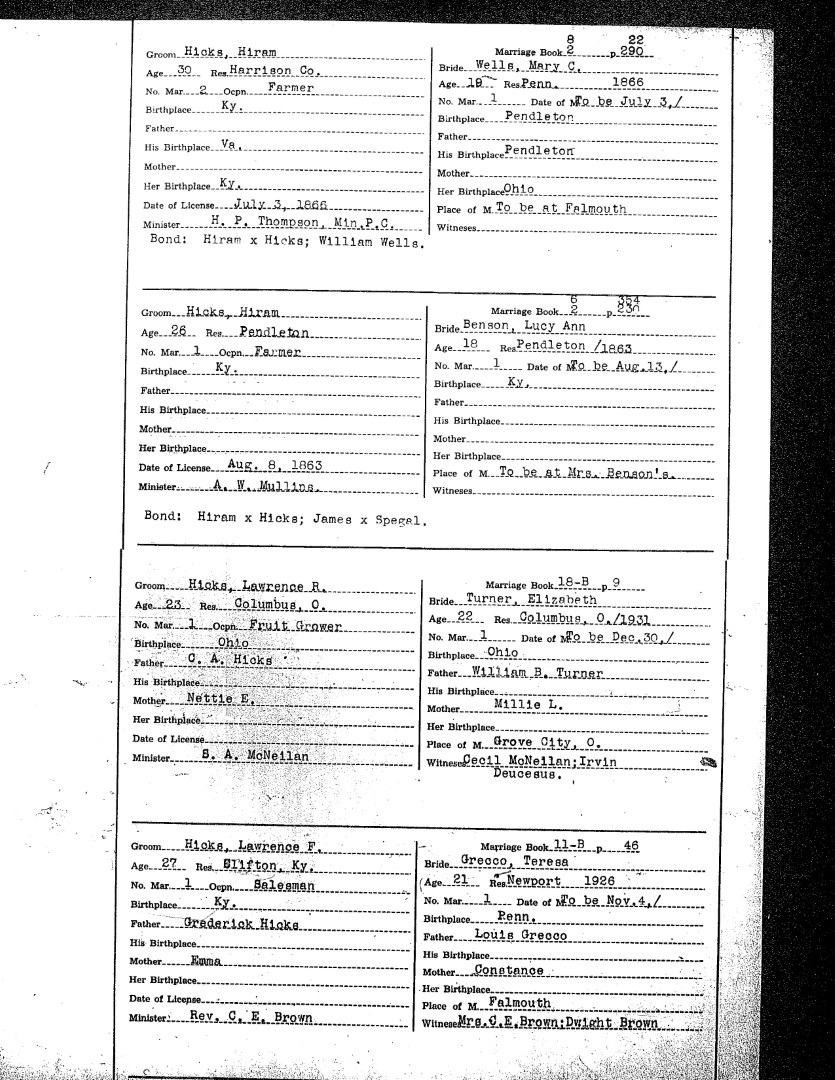 8 22
Groom Hicks, Hiram Marriage Book 2 p. 290
Age 30 Res Harrison Co. Bride Wells, Mary C.
No. Mar 2 Ocpn. Farmer Age 18 Res Penn. 1866
Birthplace Ky. No. Mar 1 Date of M To be July 3,/
Father Birthplace Pendleton
His Birthplace Va. Father
Mother His Birthplace Pendleton
Her Birthplace Ky. Mother
Date of License July 3, 1866 Her Birthplace Ohio
Minister H. P. Thompson, Min.P.C. Place of M. To be at Falmouth
Bond: Hiram x Hicks; William Wells. Witnesses
6 354
Groom Hicks, Hiram Marriage Book 2 p. 230
Age 26 Res. Pendleton Bride Benson, Lucy Ann
No. Mar 1 Ocpn. Farmer Age 18 Res Pendleton /1863
Birthplace Ky. No. Mar 1 Date of M To be Aug.13,/
Father Birthplace Ky.
His Birthplace Father
Mother His Birthplace
Her Birthplace Mother
Date of License Aug. 8, 1863 Her Birthplace
Minister A. W. Mullins. Place of M. To be at Mrs. Benson's.
Witnesses
Bond: Hiram x Hicks; James x Spegal.
Groom Hicks, Lawrence R. Marriage Book 18-B p 9
Age 23 Res. Columbus, O. Bride Turner, Elizabeth
No. Mar 1 Ocpn. Fruit Grower Age 22 Res Columbus, O./1931
Birthplace Ohio No. Mar 1 Date of M To be Dec.30,/
Father C. A. Hicks Birthplace Ohio
His Birthplace Father William B. Turner
Mother Nettie E. His Birthplace
Her Birthplace Mother Millie L.
Date of License Her Birthplace
Minister S. A. McNeilan Place of M. Grove City, O.
Witnesses Cecil McNeilan;Irvin
Deucesus.
Groom Hicks, Lawrence F. Marriage Book 11-B p. 46
Age 27 Res. Slifton, Ky. Bride Grecco, Teresa
No. Mar 1 Ocpn. Salesman Age 21 Res Newport 1926
Birthplace Ky. No. Mar 1 Date of M To be Nov.4,/
Father Grederick Hicks Birthplace Penn.
His Birthplace Father Louis Grecco
Mother Emma His Birthplace
Her Birthplace Mother Constance
Date of License Her Birthplace
Minister Rev. C. E. Brown Place of M. Falmouth
Witnesses Mrs.C.E.Brown;Dwight Brown